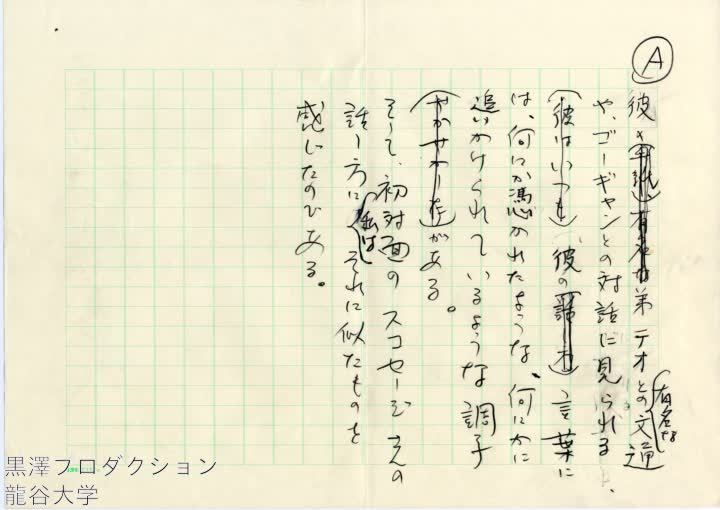 A
彼の弟テオとの有名な文通
や、ゴーギャンとの対話に見られる、
(彼はいつも)彼の(話し方)言葉に
は、何にか憑かれたような、何にかに
追いかけられているような調子
がある。
そして、初対面のスコセージえの
話し方に私はそれに似たものを
感じたのである。
黒澤プロダクション
龍谷大学